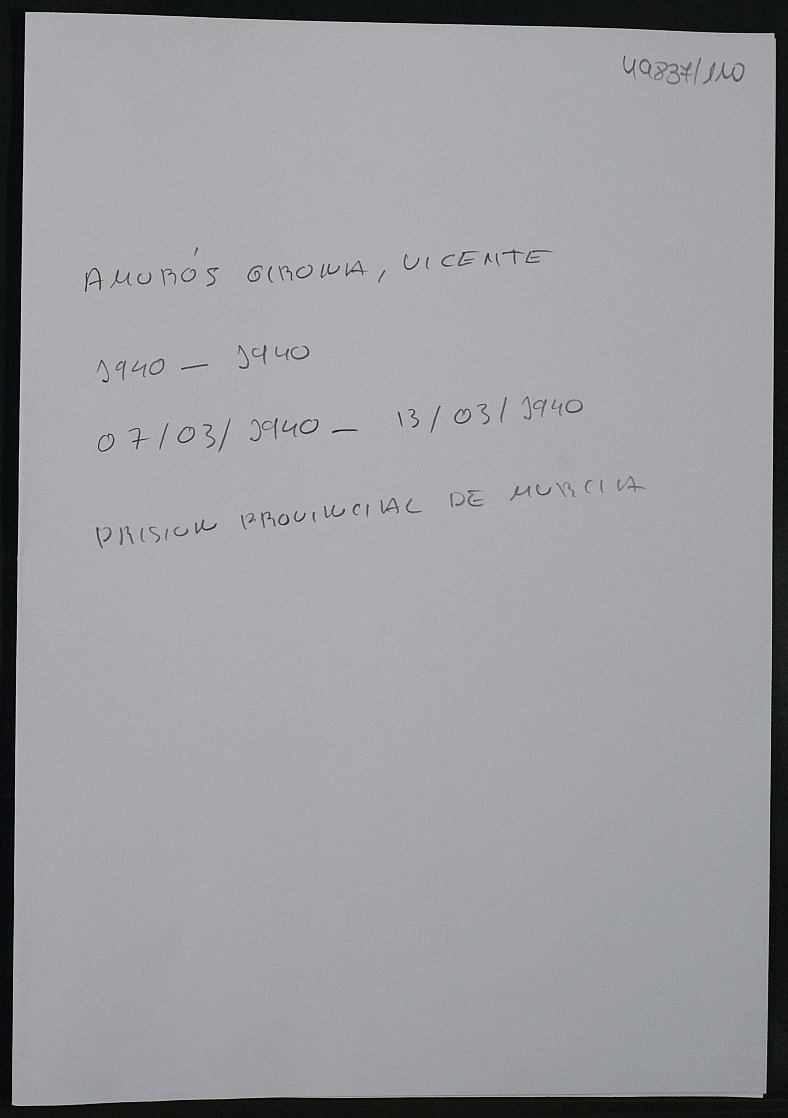 49837/110
AMORÓS GIRONA, VICENTE
1940 – 1940
07/03/1940 – 13/03/1940
PRISION PROVINCIAL DE MURCIA